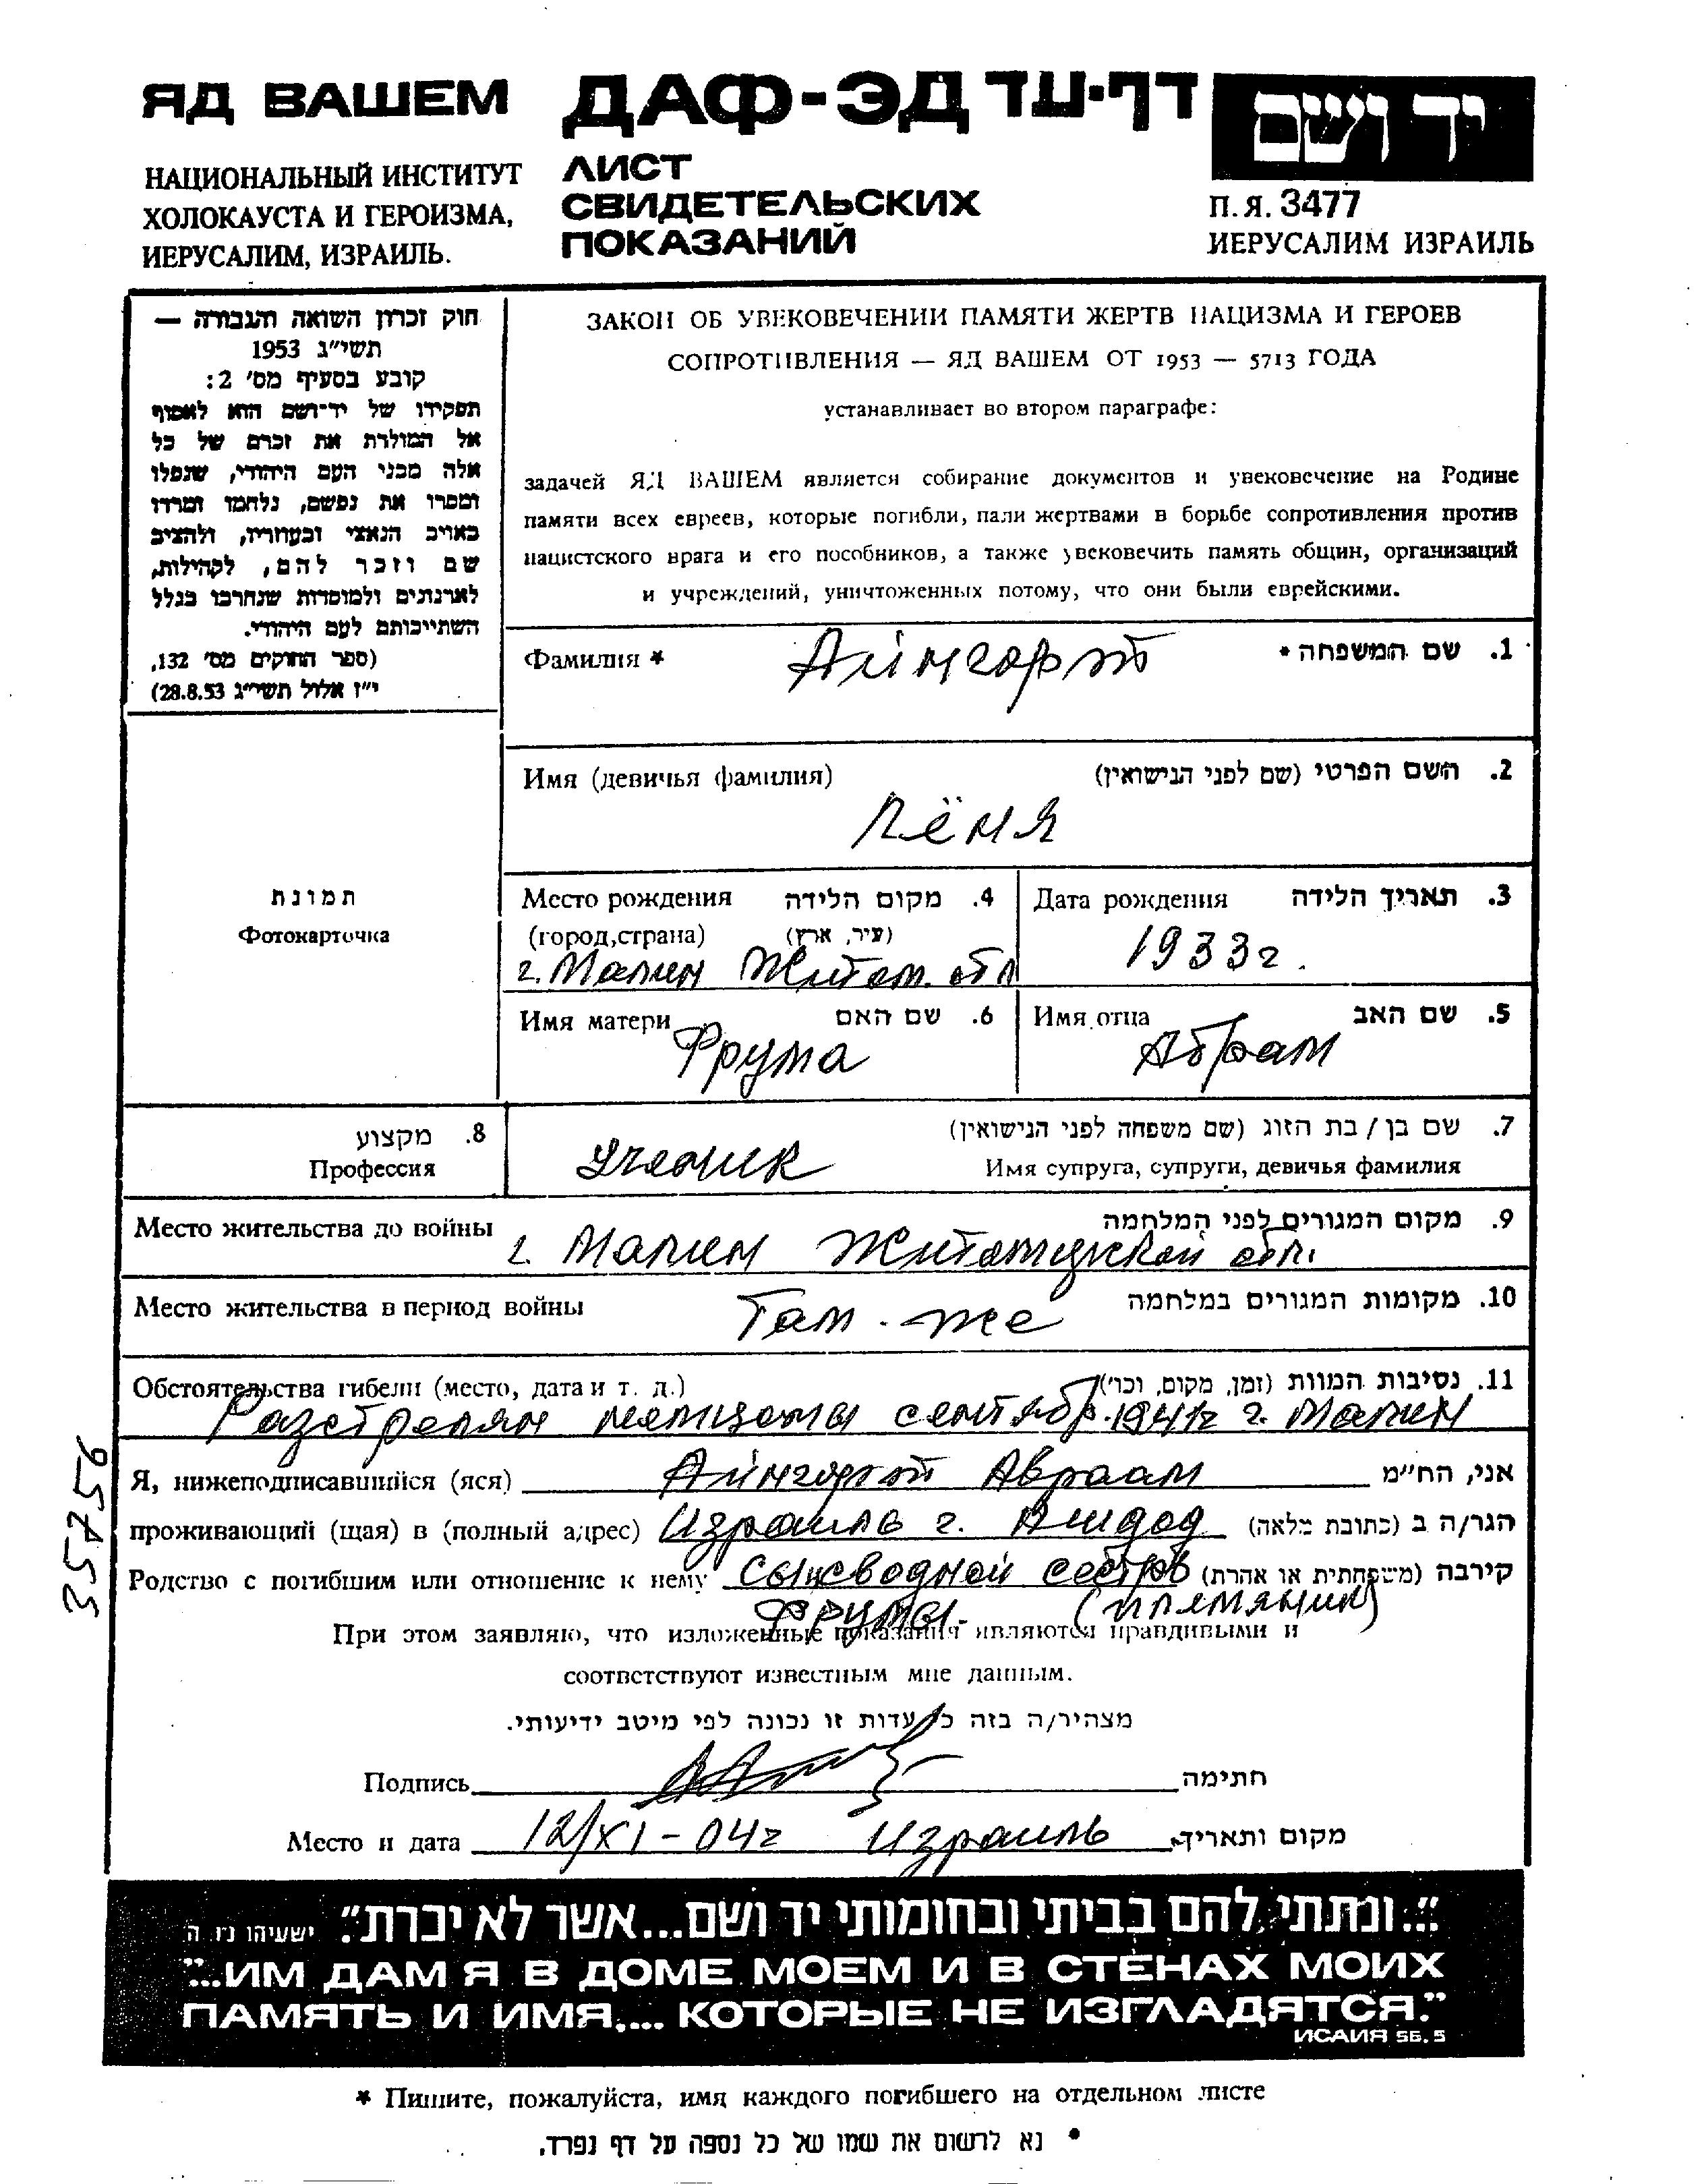 ЯД ВАШЕМ
ДАФ-ЭД דף-עד
יד ושם
НАЦИОНАЛЬНЫЙ ИНСТИТУТ
ХОЛОКАУСТА И ГЕРОИЗМА,
ИЕРУСАЛИМ, ИЗРАИЛЬ.
ЛИСТ
СВИДЕТЕЛЬСКИХ
ПОКАЗАНИЙ
П.Я. 3477
ИЕРУСАЛИМ ИЗРАИЛЬ
חוק זכרון השואה והגבורה —
תשי"ג 1953
קובע בסעיף מס' 2:
תפקידו של יד-ושם הוא לאסוף
אל המולדת את זכרם של כל
אלה מבני העם היהודי, שנפלו
ומסרו את נפשם, נלחמו ומרדו
באויב הנאצי ובעוזריו, ולהציב
שם וזכר להם, לקהילות,
לארגונים ולמוסדות שנחרבו בגלל
השתייכותם לעם היהודי.
(ספר החוקים מס' 132,
י"ז אלול תשי"ג 28.8.53)
ЗАКОН ОБ УВЕКОВЕЧЕНИИ ПАМЯТИ ЖЕРТВ НАЦИЗМА И ГЕРОЕВ
СОПРОТИВЛЕНИЯ — ЯД ВАШЕМ ОТ 1953 — 5713 ГОДА
устанавливает во втором параграфе:
задачей ЯД ВАШЕМ является собирание документов и увековечение на Родине
памяти всех евреев, которые погибли, пали жертвами в борьбе сопротивления против
нацистского врага и его пособников, а также увековечить память общин, организаций
и учреждений, уничтоженных потому, что они были еврейскими.
Фамилия * Айнгорт 1. שם המשפחה *
Имя (девичья фамилия) 2. השם הפרטי (שם לפני הנישואין)
Лёня
תמונת
Фотокарточка
Место рождения 4. מקום הלידה
(город, страна) (עיר, ארץ)
г. Малин Житом. обл
Дата рождения 3. תאריך הלידה
1933г.
Имя матери 6. שם האם
Фрума
Имя отца 5. שם האב
Абрам
8. מקצוע
Профессия
ученик
7. שם בן / בת הזוג (שם משפחה לפני הנישואין)
Имя супруга, супруги, девичья фамилия
Место жительства до войны 9. מקום המגורים לפני המלחמה
г. Малин Житомирской обл.
Место жительства в период войны 10. מקומות המגורים במלחמה
Там-же
Обстоятельства гибели (место, дата и т. д.) 11. נסיבות המוות (זמן, מקום, וכו')
Разстрелян немцами сентябр. 1941г г. Малин
Я, нижеподписавшийся (яся) Айнгорт Авраам אני, הח"מ
проживающий (щая) в (полный адрес) Израиль г. Ашдод הגר/ה ב (כתובת מלאה)
Родство с погибшим или отношение к нему Сын сводной сестры קירבה (משפחתית או אחרת)
Фрумы. (племяник)
При этом заявляю, что изложенные показания являются правдивыми и
соответствуют известным мне данным.
מצהיר/ה בזה כי עדות זו נכונה לפי מיטב ידיעותי.
Подпись חתימה
Место и дата 12/XI-04г Израиль מקום ותאריך
"...ונתתי להם בביתי ובחומותי יד ושם...אשר לא יכרת". ישעיהו נו ה
"...ИМ ДАМ Я В ДОМЕ МОЕМ И В СТЕНАХ МОИХ
ПАМЯТЬ И ИМЯ,... КОТОРЫЕ НЕ ИЗГЛАДЯТСЯ."
ИСАИЯ 56. 5
* Пишите, пожалуйста, имя каждого погибшего на отдельном листе
* נא לרשום את שמו של כל נספה על דף נפרד.